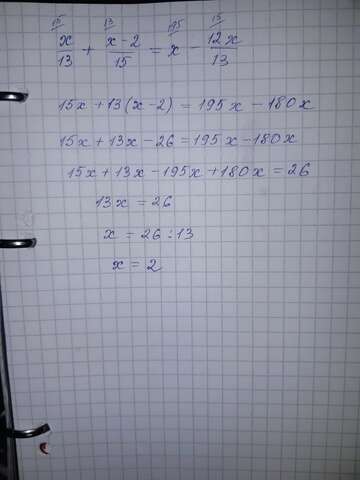 15 13 195 15
x/13 + x-2/15 = x - 12x/13
15x + 13(x-2) = 195x - 180x
15x + 13x - 26 = 195x - 180x
15x + 13x - 195x + 180x = 26
13x = 26
x = 26 : 13
x = 2